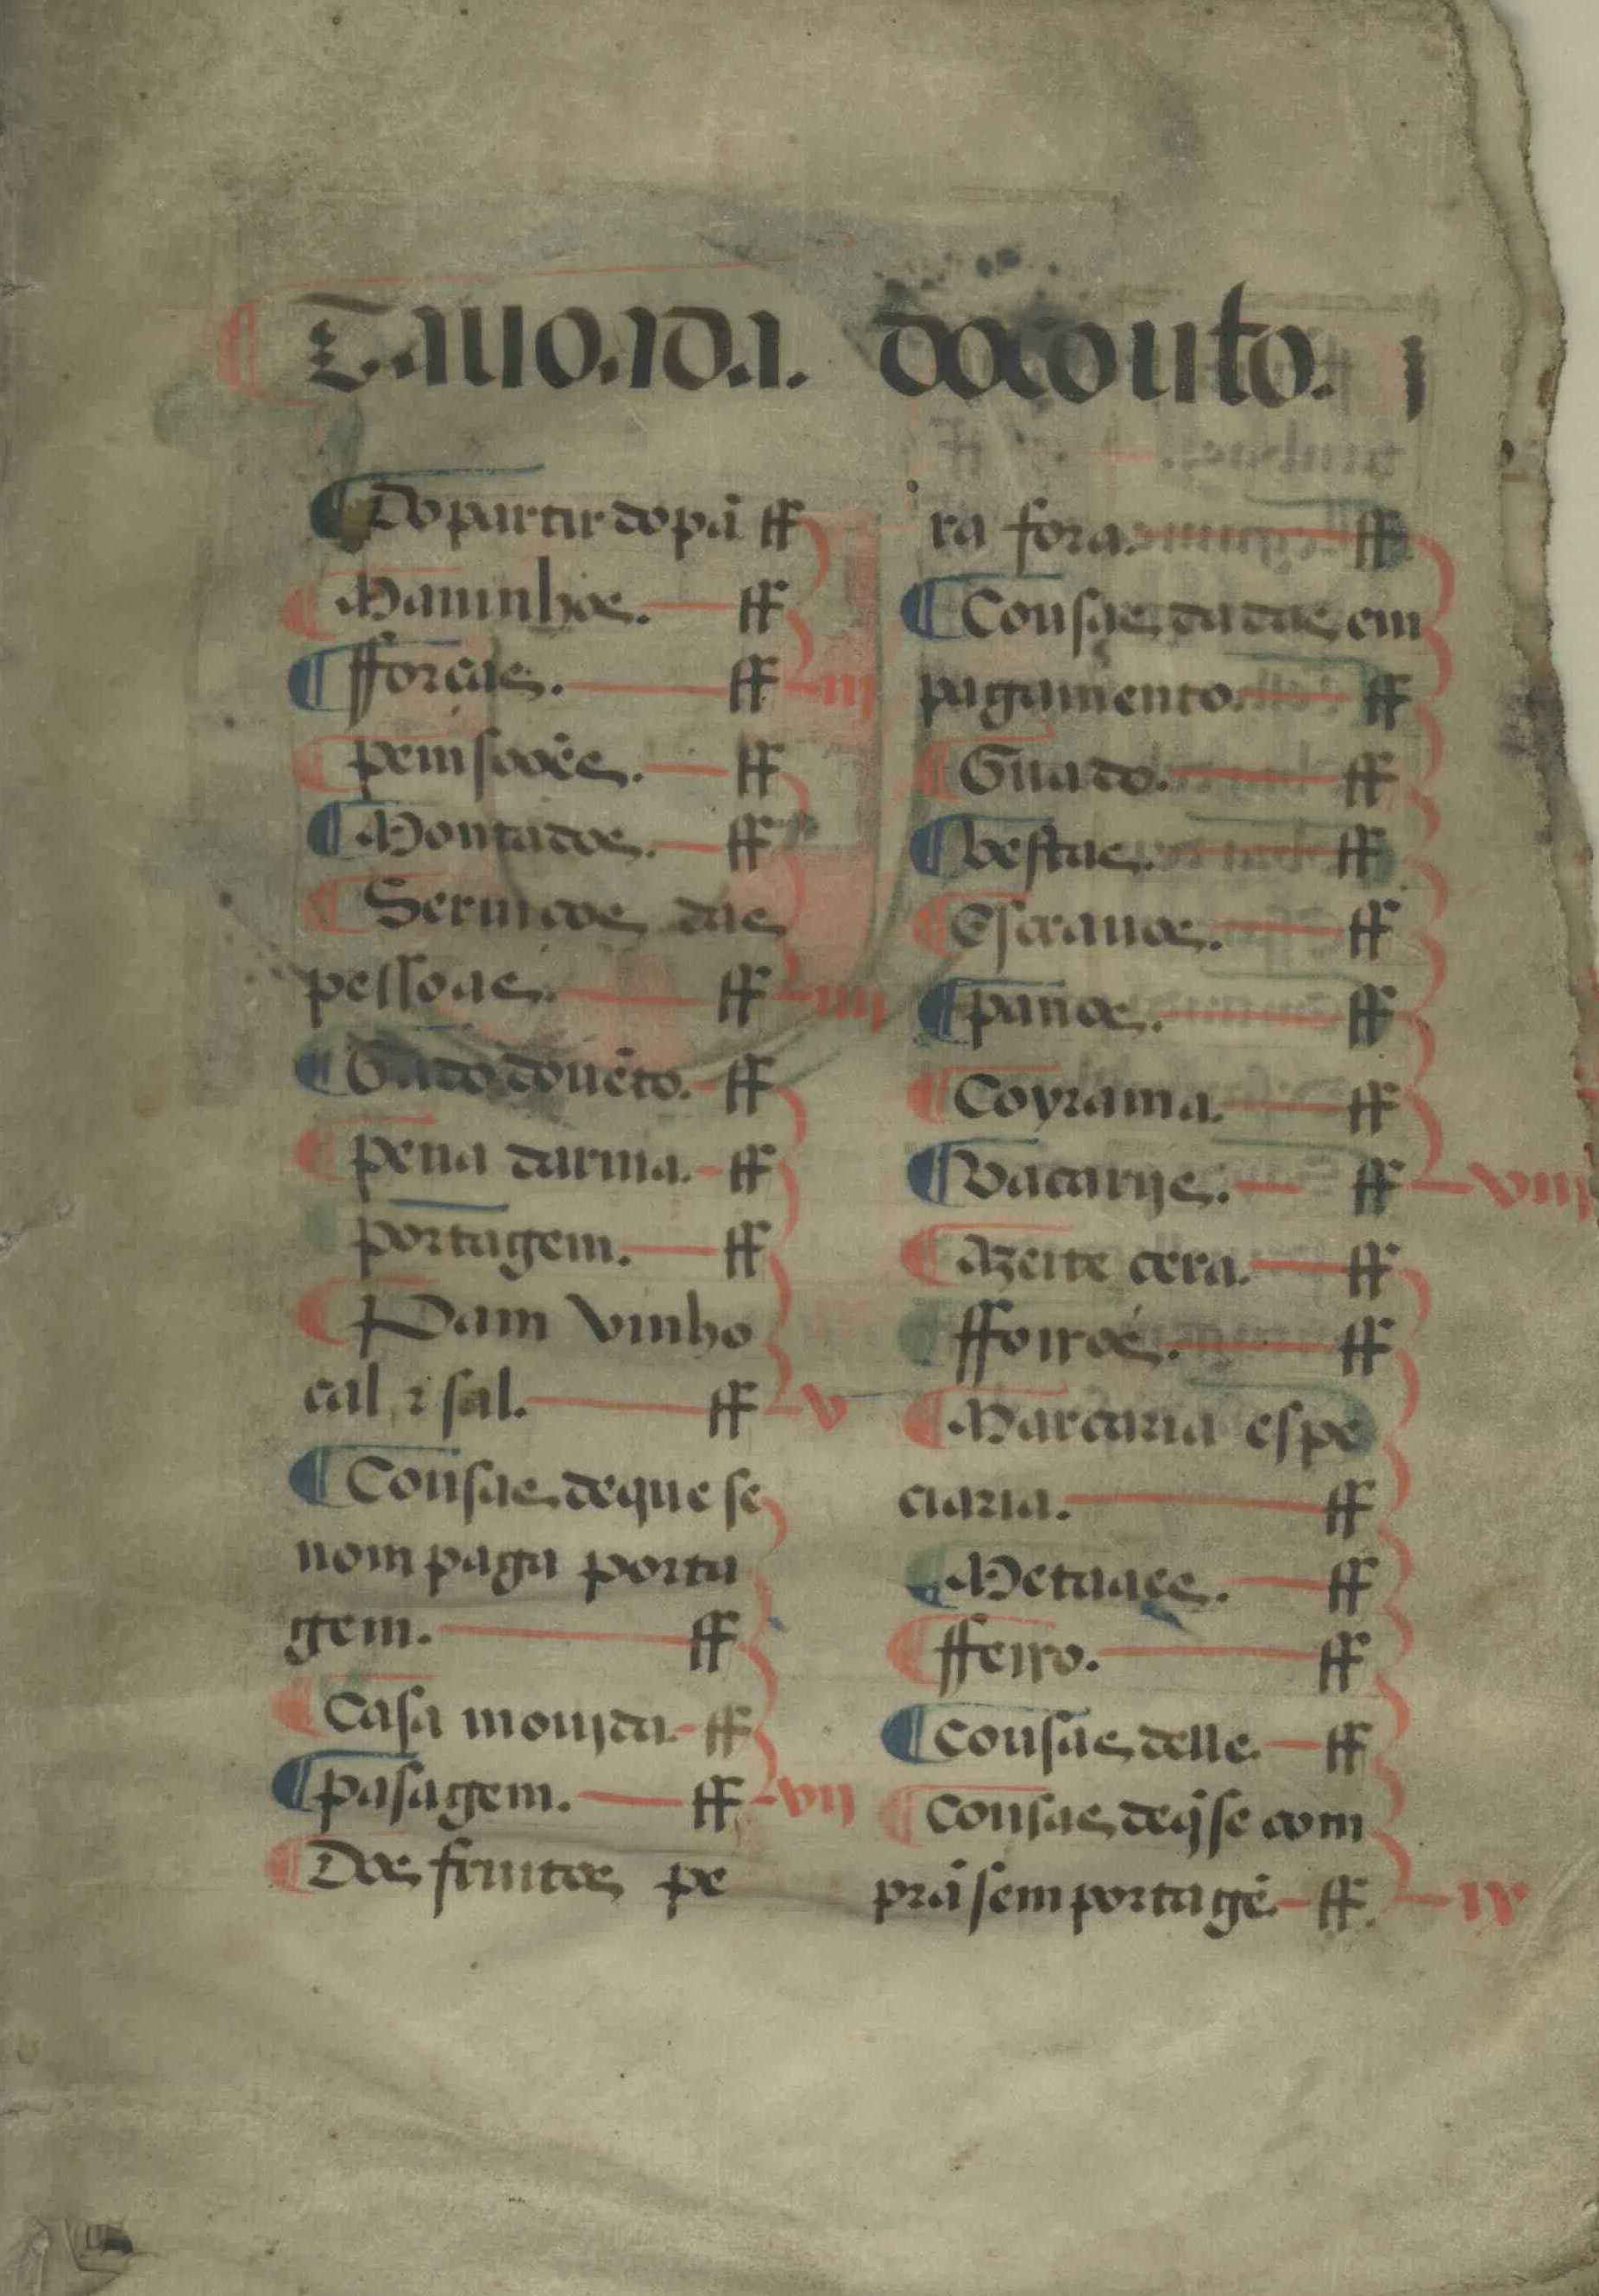 Tauoada docouto.
Do partir do pã ff
Maninhos. ff
fforças. ff iii
penssoões. ff
Montados. ff
Seruicos das
pessoas. ff iiii
Gado do uẽto. ff
pena darma. ff
portagem. ff
Pam vinho
cal, ⁊ sal. ff v
Cousas de que se
nom paga porta
gem. ff
Casa mouida. ff
pasagem. ff vii
Dos fruitos pe
ra fora. ff
Cousas dadas em
pagamento. ff
Guado. ff
bestas. ff
Escrauos. ff
panos. ff
Coyrama. ff
Vacarijs. ff
Azeite cera. ff
fforros. ff
Marcaria espe
ciaria. ff
Metaaes. ff
ffeirro. ff
Cousas delle. ff
Cousas deq̃ se com
prã sem portagẽ. ff. ix